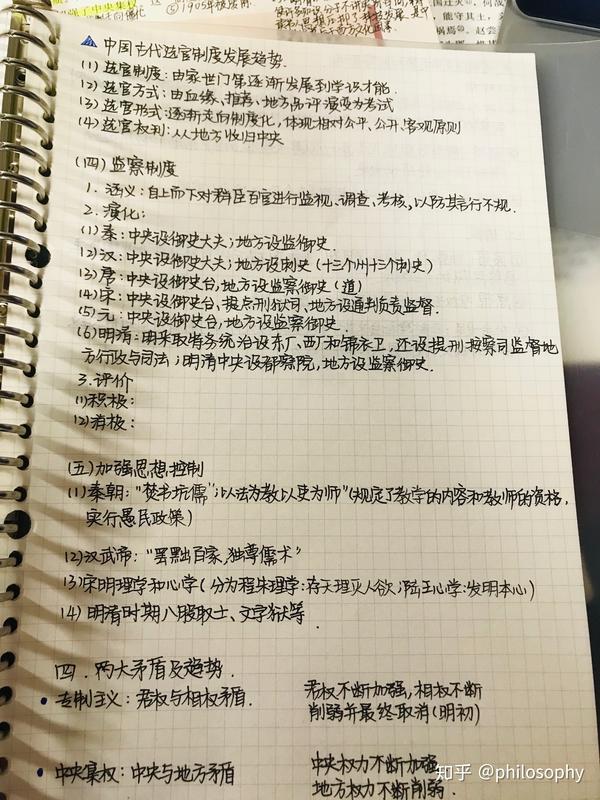 强了中央集权
⑤1905年被废除
▲中国古代选官制度发展趋势.
(1) 选官制度：由家世门第逐渐发展到学识才能.
(2) 选官方式：由血缘、推荐、地方品评演变为考试
(3) 选官形式：逐渐走向制度化，体现相对公平、公开、客观原则
(4) 选官权利：从地方收归中央
(四) 监察制度
1. 涵义：自上而下对群臣百官进行监视、调查、考核，以防其言行不规.
2. 演化：
(1)秦：中央设御史大夫；地方设监御史.
(2)汉：中央设御史大夫；地方设刺史（十三个州十三个刺史）
(3)唐：中央设御史台，地方设监察御史（道）
(4)宋：中央设御史台、提点刑狱司、地方设通判负责监督.
(5)元：中央设御史台，地方设监察御史.
(6)明清：明采取特务统治设东厂、西厂和锦衣卫，还设提刑按察司监督地
方行政与司法；明清中央设都察院，地方设监察御史.
3.评价
(1)积极：
(2)消极：
(五)加强思想控制
(1)秦朝：“焚书坑儒”；“以法为教以吏为师”(规定了教学的内容和教师的资格，
实行愚民政策）
(2)汉武帝：“罢黜百家，独尊儒术”
(3)宋明理学和心学（分为程朱理学：存天理灭人欲；陆王心学：发明本心）
(4) 明清时期八股取士、文字狱等.
四. 两大矛盾及趋势.
• 专制主义：君权与相权矛盾. 君权不断加强，相权不断
削弱并最终取消（明初）
• 中央集权：中央与地方矛盾 中央权力不断加强
地方权力不断削弱.
知乎 @philosophy